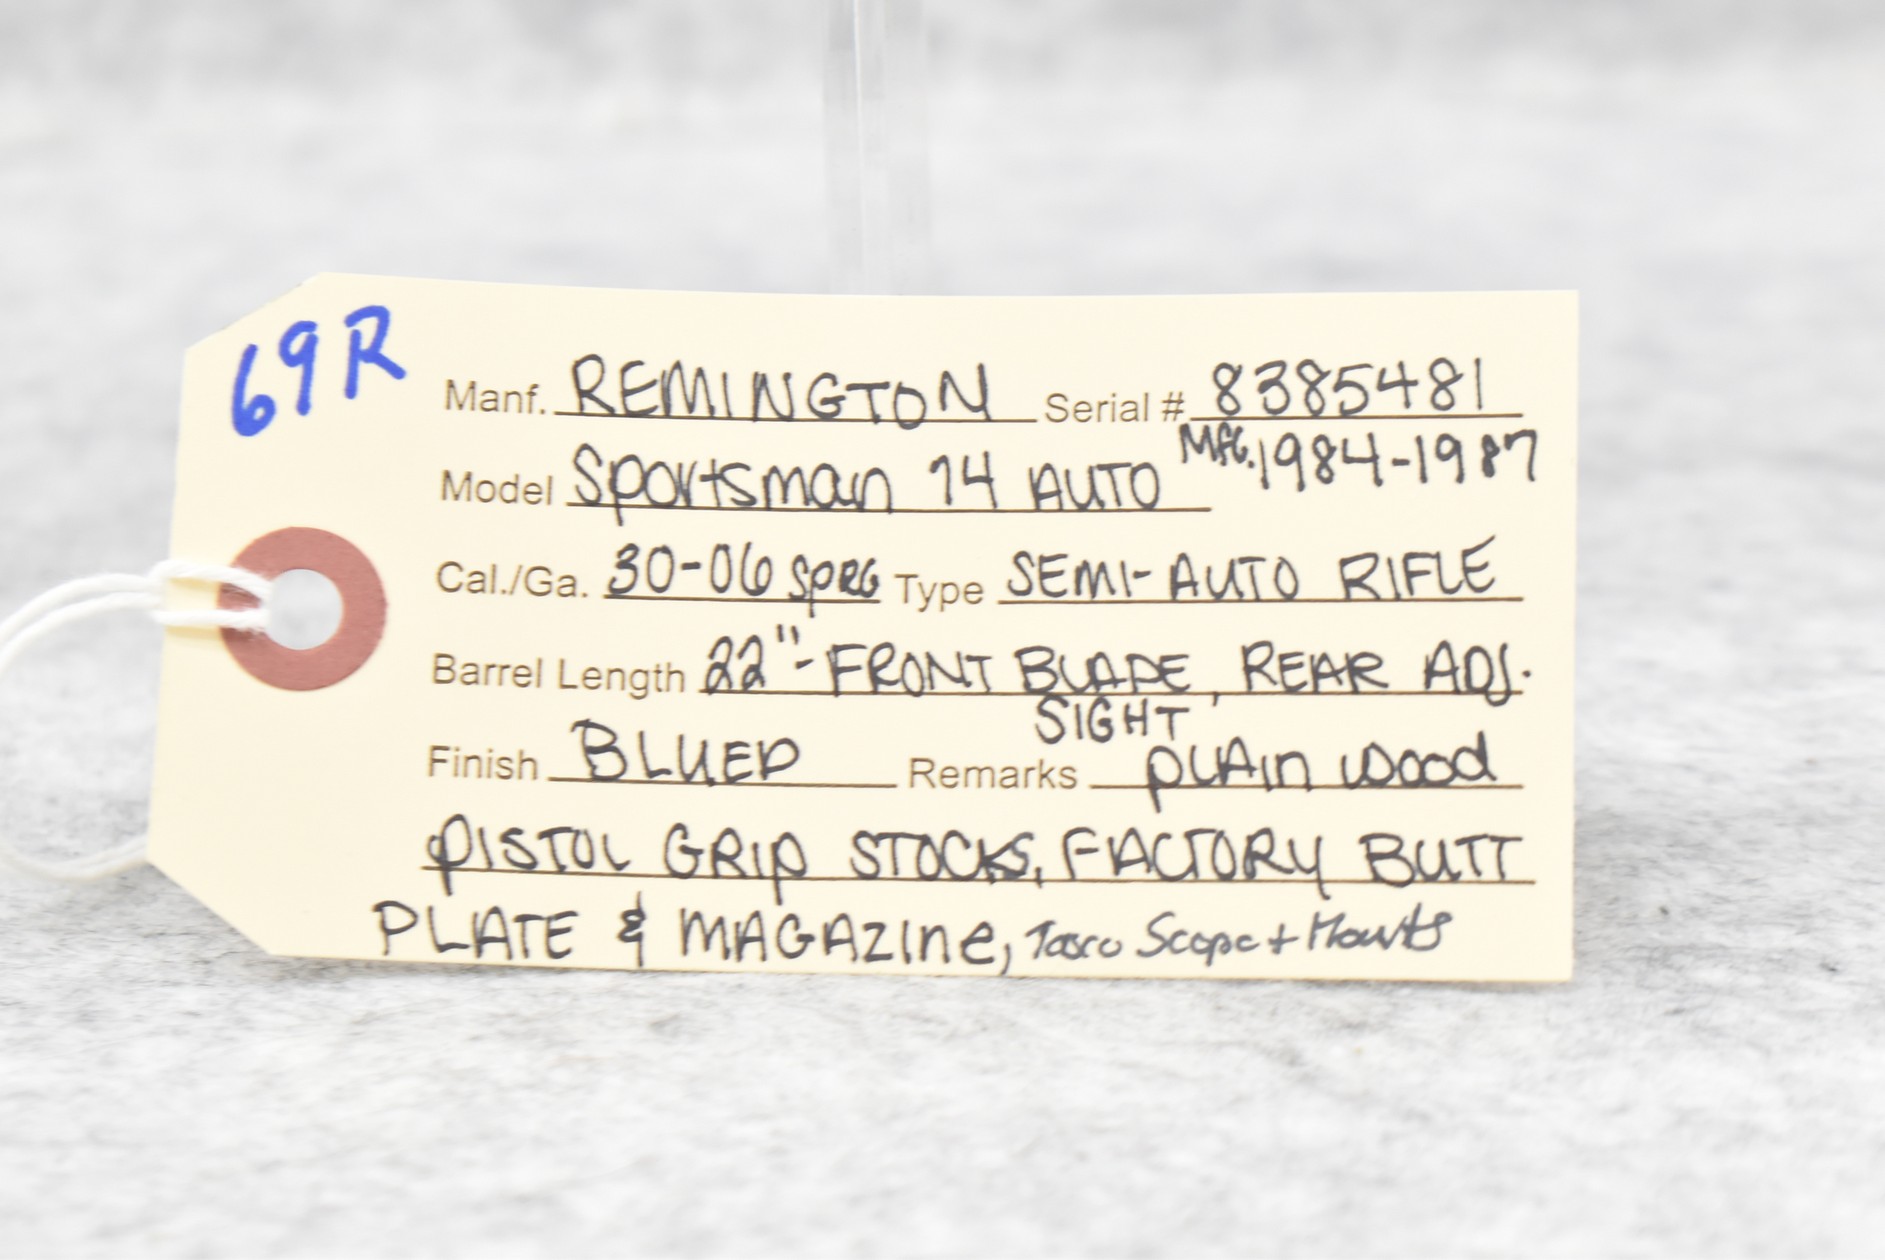 69R
Manf. REMINGTON Serial # 8385481
Model Sportsman 74 AUTO Mfg. 1984-1987
Cal./Ga. 30-06 SPRG Type SEMI-AUTO RIFLE
Barrel Length 22"- FRONT BLADE, REAR ADJ.
SIGHT
Finish BLUED Remarks PLAIN WOOD
PISTOL GRIP STOCKS, FACTORY BUTT
PLATE & MAGAZINE, Tasco Scope + Mounts